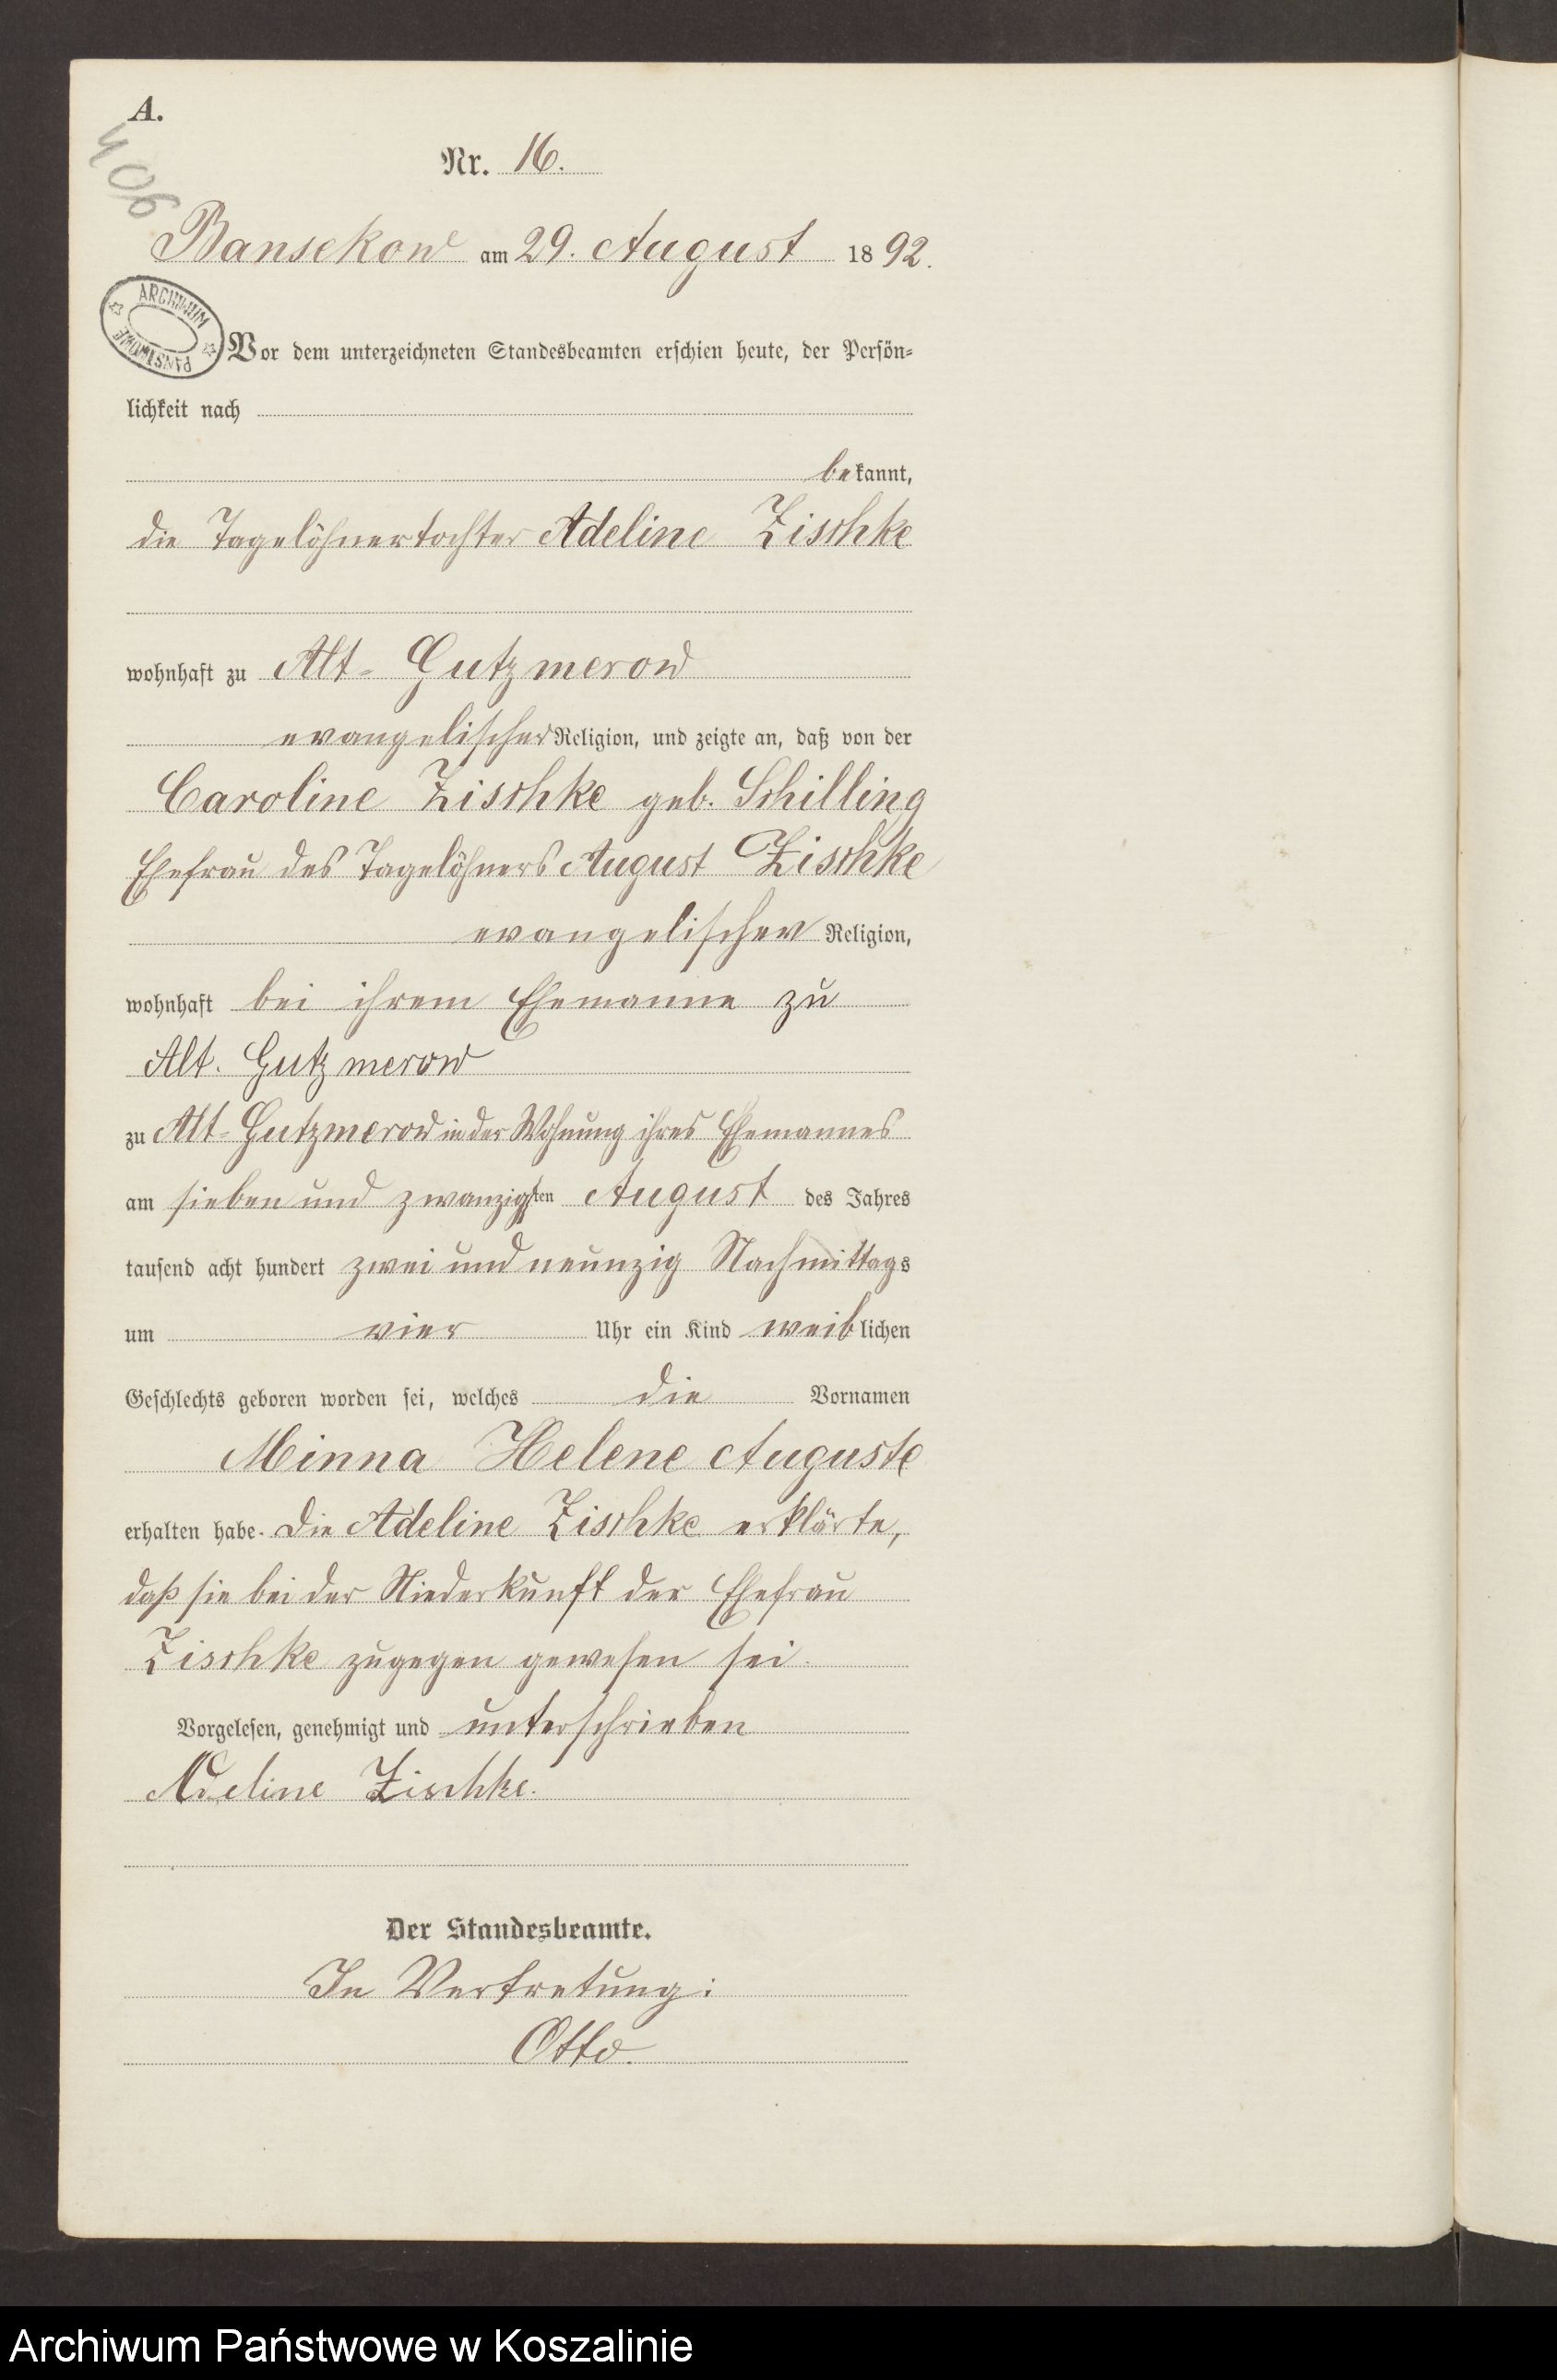 A.
406
Nr. 16.
Bansekow am 29. August 1892.
ARCHIWUM PAŃSTWOWE
Vor dem unterzeichneten Standesbeamten erschien heute, der Persön-
lichkeit nach
bekannt,
die Tagelöhnertochter Adeline Zischke
wohnhaft zu Alt-Gutzmerow
evangelischer Religion, und zeigte an, daß von der
Caroline Zischke geb. Schilling
Ehefrau des Tagelöhners August Zischke
evangelischer Religion,
wohnhaft bei ihrem Ehemanne zu
Alt-Gutzmerow
zu Alt-Gutzmerow in der Wohnung ihres Ehemannes
am sieben und zwanzigsten August des Jahres
tausend acht hundert zwei und neunzig Nachmittags
um vier Uhr ein Kind weiblichen
Geschlechts geboren worden sei, welches die Vornamen
Minna Helene Auguste
erhalten habe. Die Adeline Zischke erklärte,
daß sie bei der Niederkunft der Ehefrau
Zischke zugegen gewesen sei.
Vorgelesen, genehmigt und unterschrieben
Adeline Zischke.
Der Standesbeamte.
In Vertretung:
Otto.
Archiwum Państwowe w Koszalinie